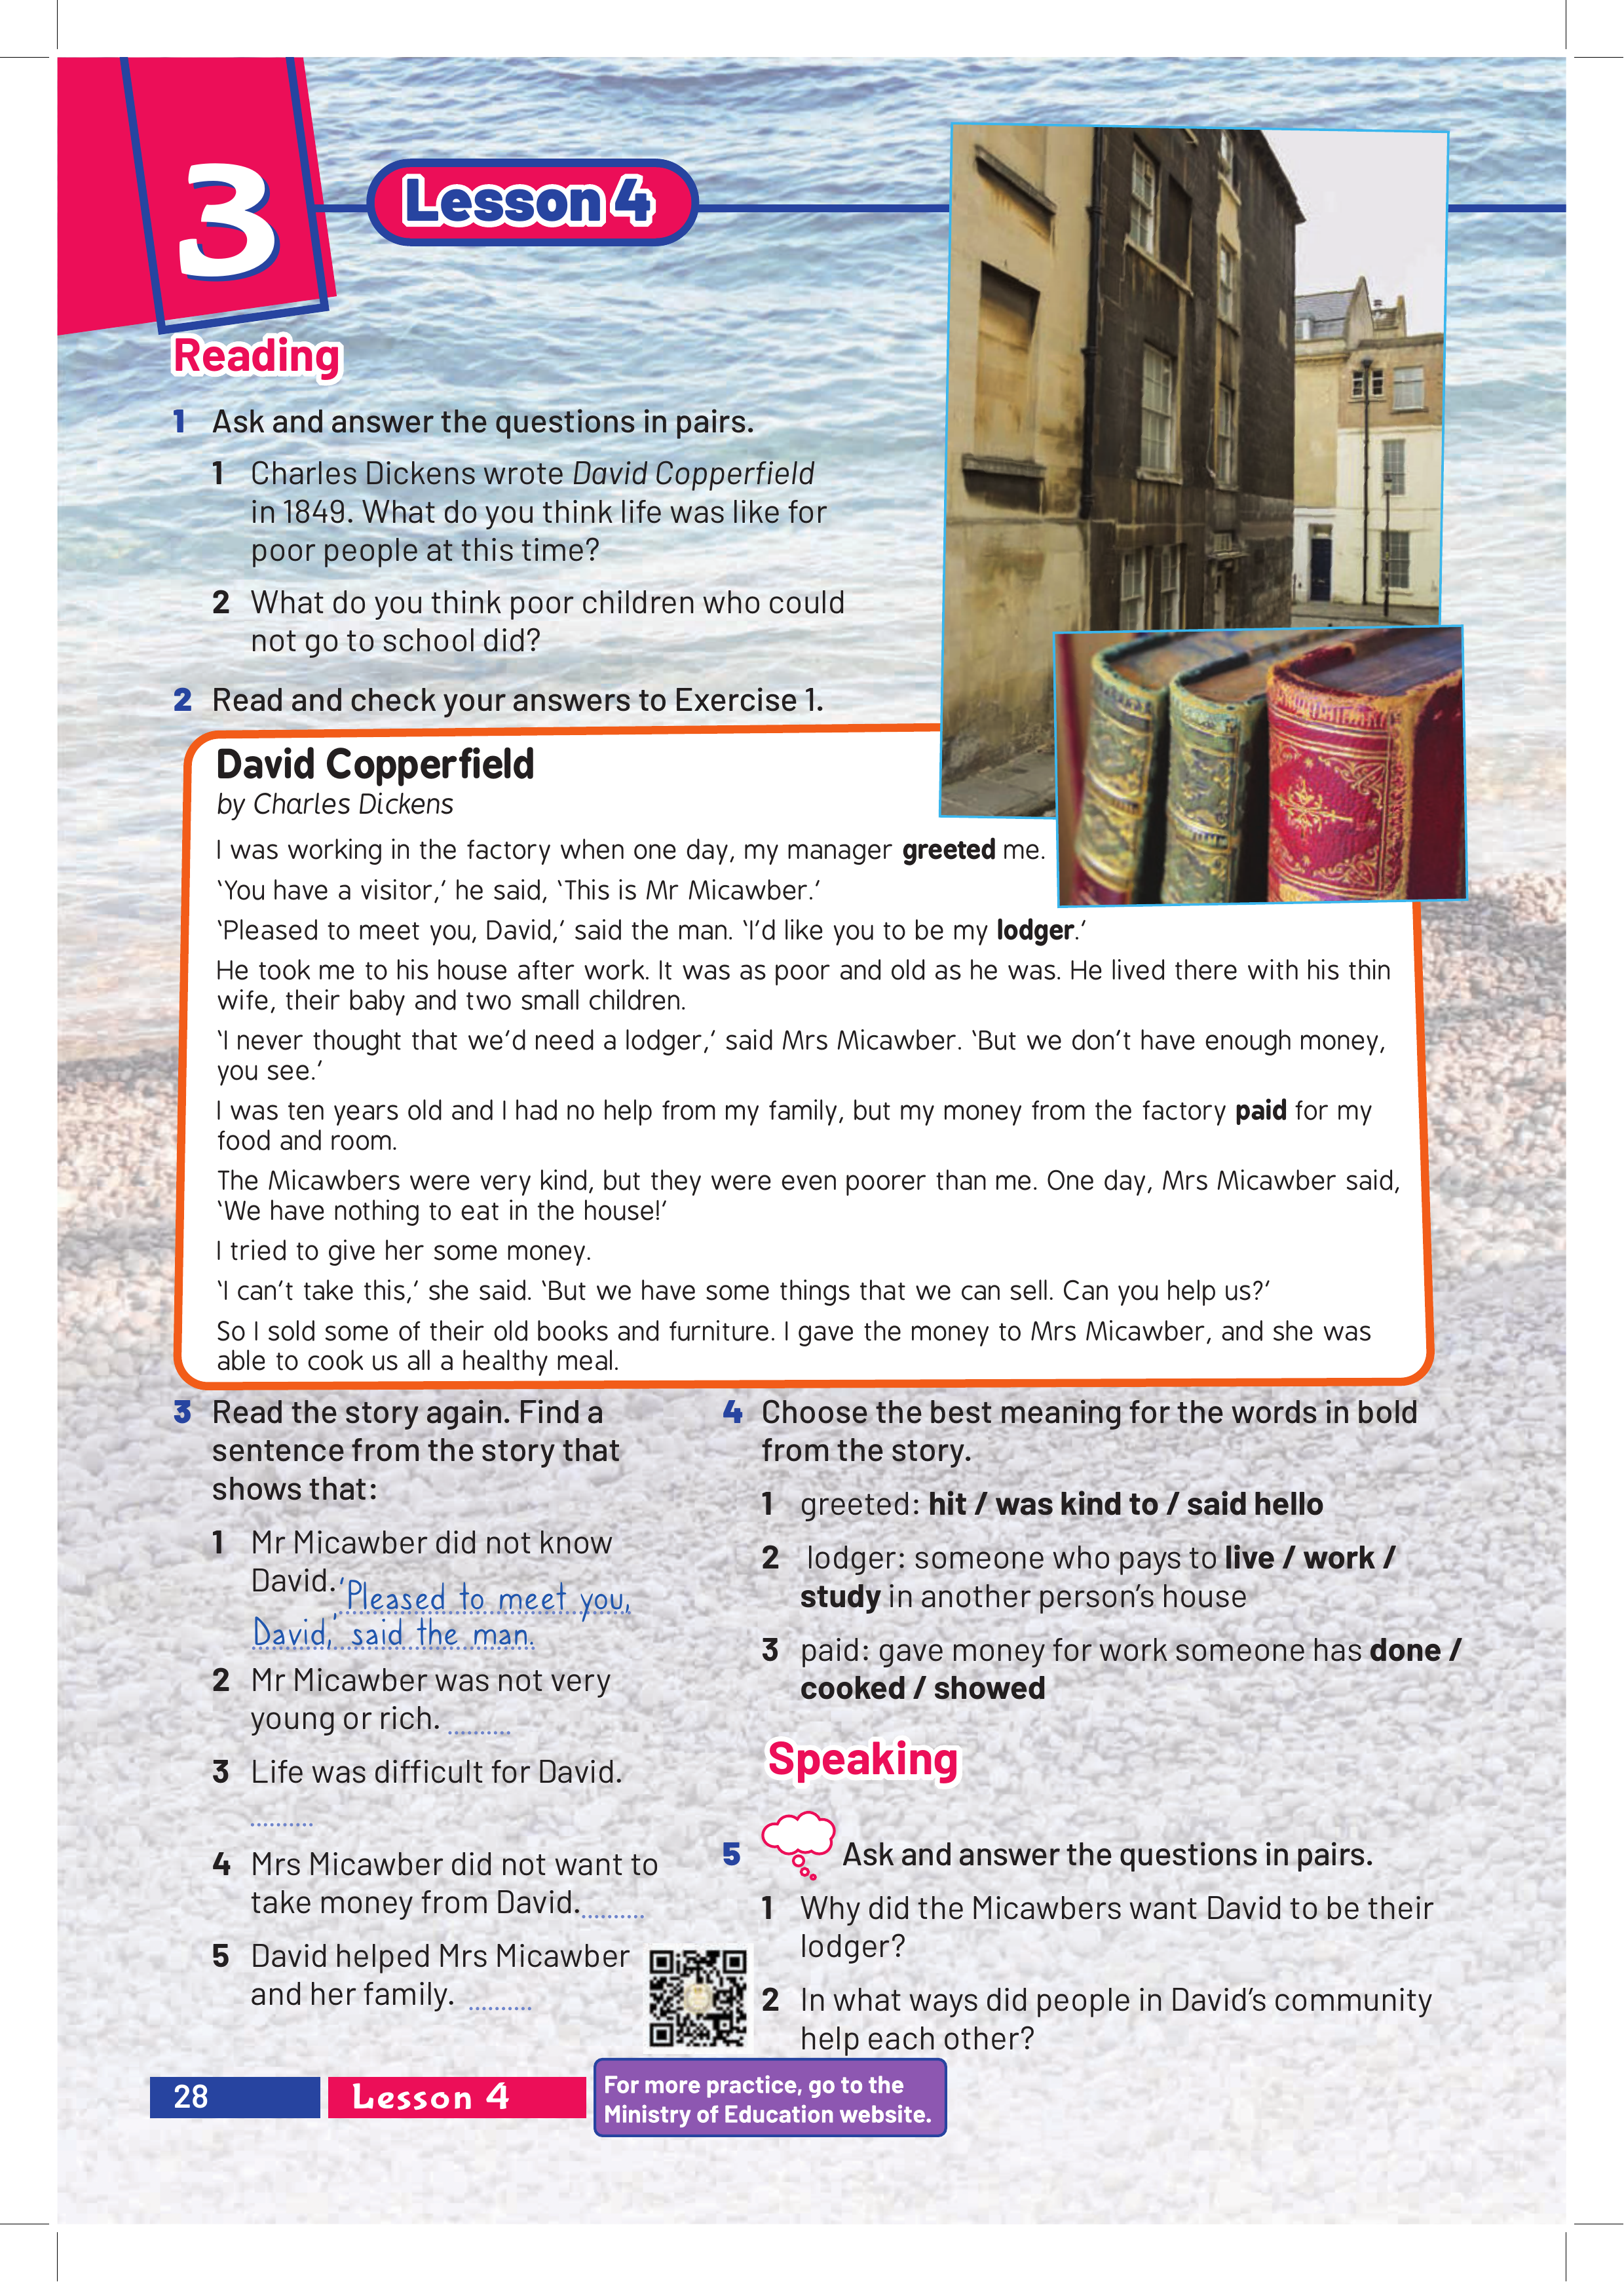 3
Lesson 4
Reading
1 Ask and answer the questions in pairs.
1 Charles Dickens wrote David Copperfield
in 1849. What do you think life was like for
poor people at this time?
2 What do you think poor children who could
not go to school did?
2 Read and check your answers to Exercise 1.
David Copperfield
by Charles Dickens
I was working in the factory when one day, my manager greeted me.
‘You have a visitor,’ he said, ‘This is Mr Micawber.’
‘Pleased to meet you, David,’ said the man. ‘I’d like you to be my lodger.’
He took me to his house after work. It was as poor and old as he was. He lived there with his thin
wife, their baby and two small children.
‘I never thought that we’d need a lodger,’ said Mrs Micawber. ‘But we don’t have enough money,
you see.’
I was ten years old and I had no help from my family, but my money from the factory paid for my
food and room.
The Micawbers were very kind, but they were even poorer than me. One day, Mrs Micawber said,
‘We have nothing to eat in the house!’
I tried to give her some money.
‘I can’t take this,’ she said. ‘But we have some things that we can sell. Can you help us?’
So I sold some of their old books and furniture. I gave the money to Mrs Micawber, and she was
able to cook us all a healthy meal.
3 Read the story again. Find a
sentence from the story that
shows that:
1 Mr Micawber did not know
David. ‘Pleased to meet you,
David,’ said the man.
2 Mr Micawber was not very
young or rich. ..........
3 Life was difficult for David.
..........
4 Mrs Micawber did not want to
take money from David. ..........
5 David helped Mrs Micawber
and her family. ..........
4 Choose the best meaning for the words in bold
from the story.
1 greeted: hit / was kind to / said hello
2 lodger: someone who pays to live / work /
study in another person’s house
3 paid: gave money for work someone has done /
cooked / showed
Speaking
5 Ask and answer the questions in pairs.
1 Why did the Micawbers want David to be their
lodger?
2 In what ways did people in David’s community
help each other?
28
Lesson 4
For more practice, go to the
Ministry of Education website.